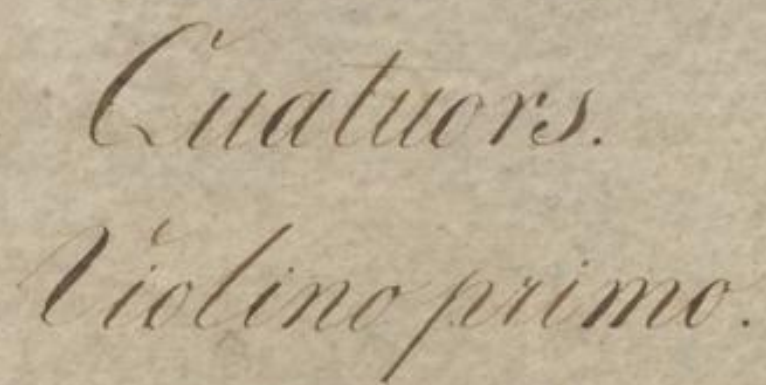 Quatuors.
Violino primo.